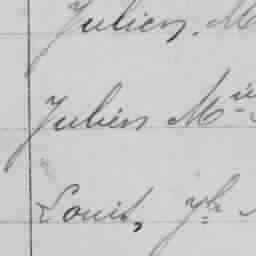 Julien, M
Julien M
Louis, Jh